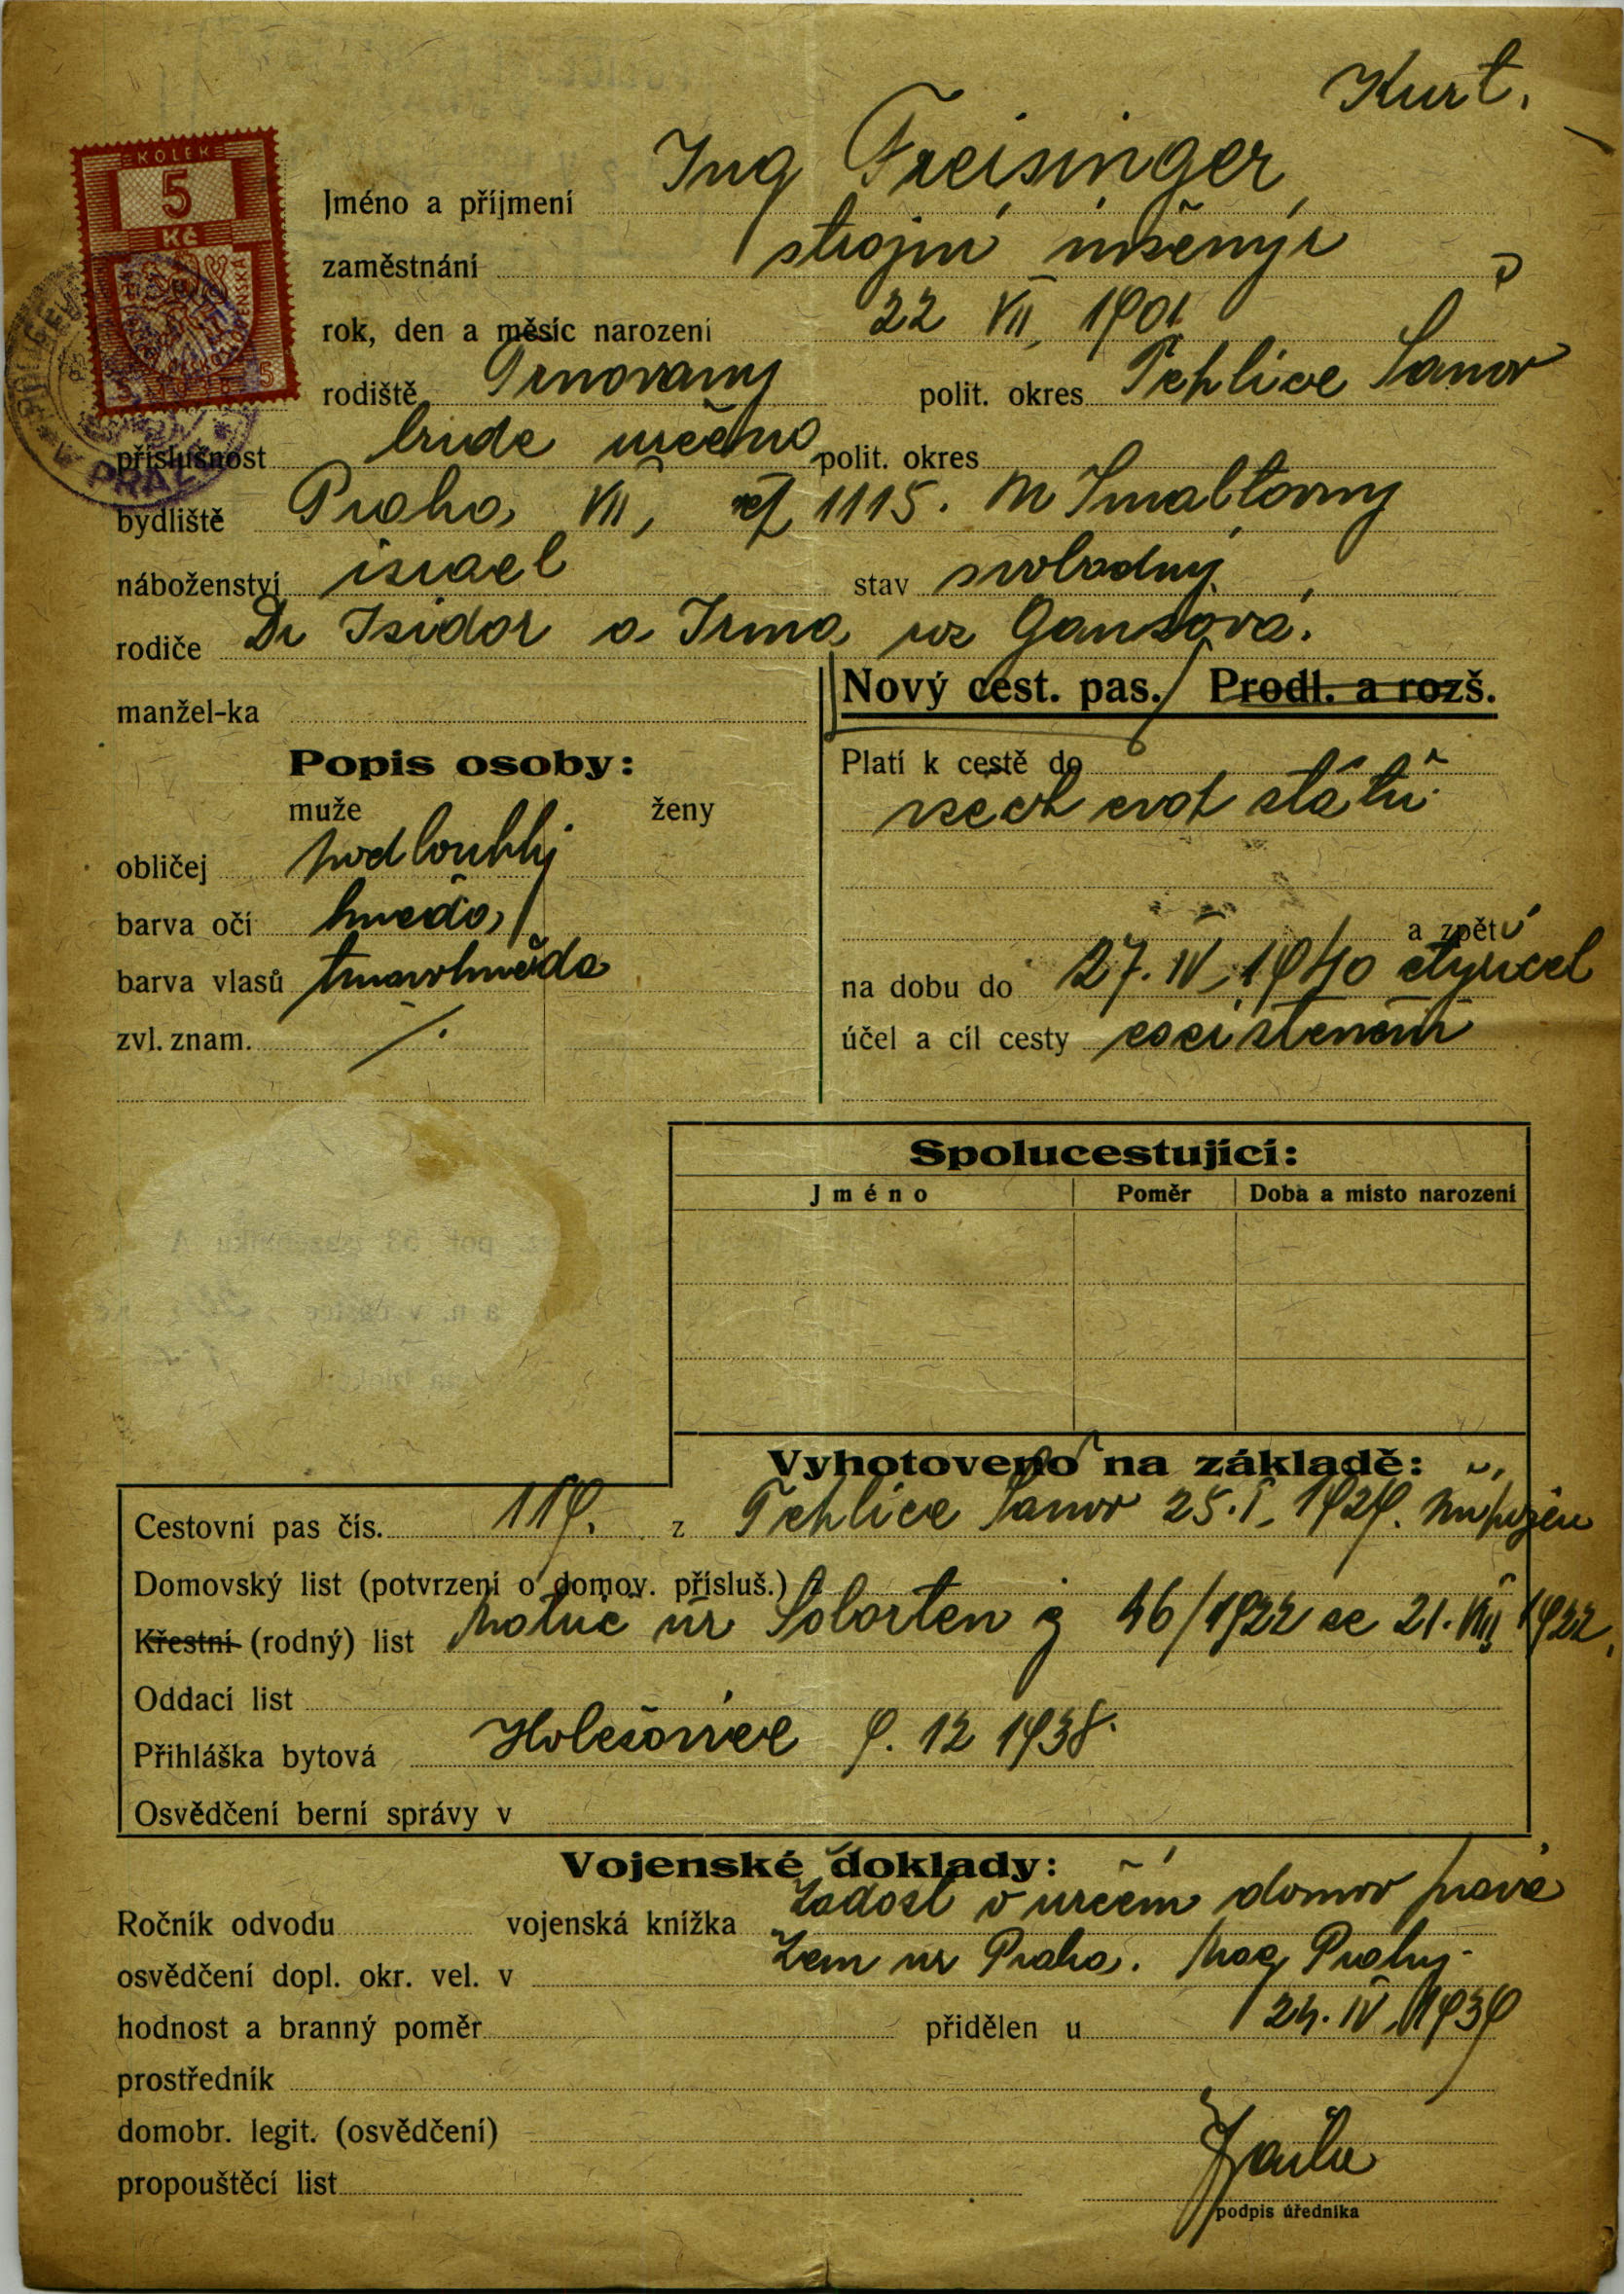 Kurt.
KOLEK
5
Kč
Jméno a příjmení Ing Freisinger,
zaměstnání strojní inženýr
rok, den a měsíc narození 22 VII, 1901
rodiště Trnovany polit. okres Teplice Šanov
příslušnost bude určena polit. okres
bydliště Praha, VII, čp 1115. Smaltovny
náboženství israel stav svobodný
rodiče Dr Isidor a Irma roz Gansová.
manžel-ka
Nový cest. pas. Prodl. a rozš.
Popis osoby:
muže ženy
obličej podlouhlý
barva očí hnědá,
barva vlasů tmavohnědá
zvl. znam. /.
Platí k cestě do
všech evr států
a zpět
na dobu do 27. IV, 1940 čtyřicet
účel a cíl cesty existenční
Spolucestující:
Jméno Poměr Doba a místo narození
Vyhotoveno na základě:
Cestovní pas čís. 119. z Teplice Šanov 25. I, 1929.
Domovský list (potvrzení o domov. přísluš.) z
Křestní (rodný) list Matič úř Soborten 46/1922 ze 21. VIII 1922.
Oddací list
Přihláška bytová Holešovice 9. 12 1938.
Osvědčení berní správy v
Vojenské doklady:
Žádost o určení domov práva
Ročník odvodu vojenská knížka
Zem úř Praha. Mag Prahy
osvědčení dopl. okr. vel. v
hodnost a branný poměr přidělen u 24. IV, 1939
prostředník
domobr. legit. (osvědčení)
propouštěcí list
podpis úředníka